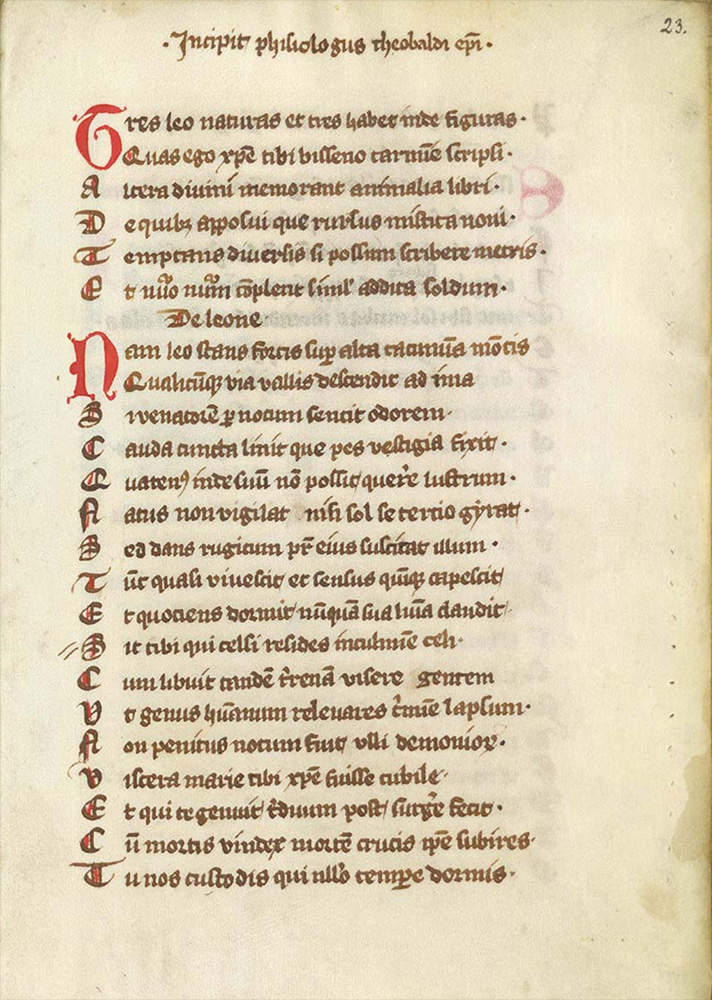 23.
·Incipit phisiologus theobaldi epi·
Tres leo naturas et tres habet inde figuras·
Quas ego xpe tibi bisseno carmine scripsi·
Altera divini memorant animalia libri·
De quibus apposui que rursus mistica novi·
Temptans diversis si possum scribere metris·
Et numerum complent simul addita soldum·
De leone·
Nam leo stans fortis sup alta cacumina motis
Qualicuqz via vallis descendit ad ima
Si venatore p notum sentit odorem·
Cauda cuncta linit que pes vestigia fixit·
Quaten9 inde suu no possit quere lustrum·
Natus non vigilat nisi sol se tercio gyrat·
Sed dans rugitum pr eius suscitat illum·
Tuc quasi vivescit et sensus quiqz capescit
Et quociens dormit nuqua sua luia claudit
Sic tibi qui celsi resides inculmine celi·
Cum libuit tande trena visere gentem
Ut genus humanum relevares crimie lapsum·
Non penitus notum fuit ulli demonioꝝ·
Viscera marie tibi xpe fuisse cubile·
Et qui te genuit triduum post surgere fecit·
Cu mortis vindex morte crucis ipe subires·
Tu nos custodis qui nllo tempe dormis·